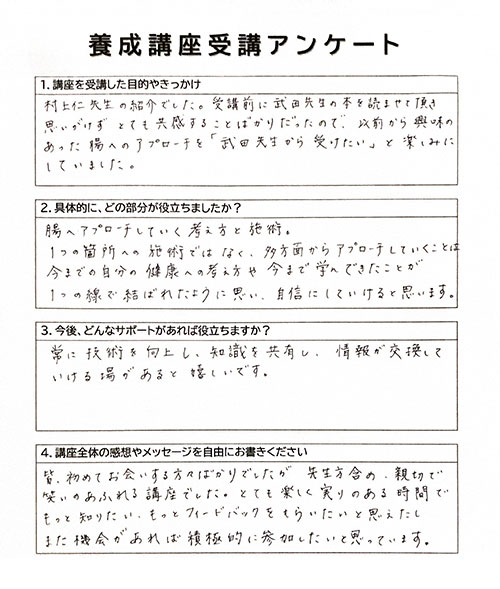 養成講座受講アンケート
1. 講座を受講した目的やきっかけ
村上仁先生の紹介でした。受講前に武田先生の本を読ませて頂き
思いがけず とても共感することばかりだったので、以前から興味の
あった腸へのアプローチを「武田先生から受けたい」と楽しみに
していました。
2. 具体的に、どの部分が役立ちましたか?
腸へアプローチしていく考え方と施術。
1つの箇所への施術ではなく、多方面からアプローチしていくことは
今までの自分の健康への考え方や今まで学んできたことが
1つの線で結ばれたように思い、自信にしていけると思います。
3. 今後、どんなサポートがあれば役立ちますか?
常に技術を向上し、知識を共有し、情報が交換して
いける場があると嬉しいです。
4. 講座全体の感想やメッセージを自由にお書きください
皆、初めてお会いする方々ばかりでしたが 先生方含め、親切で
笑いのあふれる講座でした。とても楽しく実りのある時間で
もっと知りたい、もっとフィードバックをもらいたいと思えたし
また機会があれば積極的に参加したいと思っています。